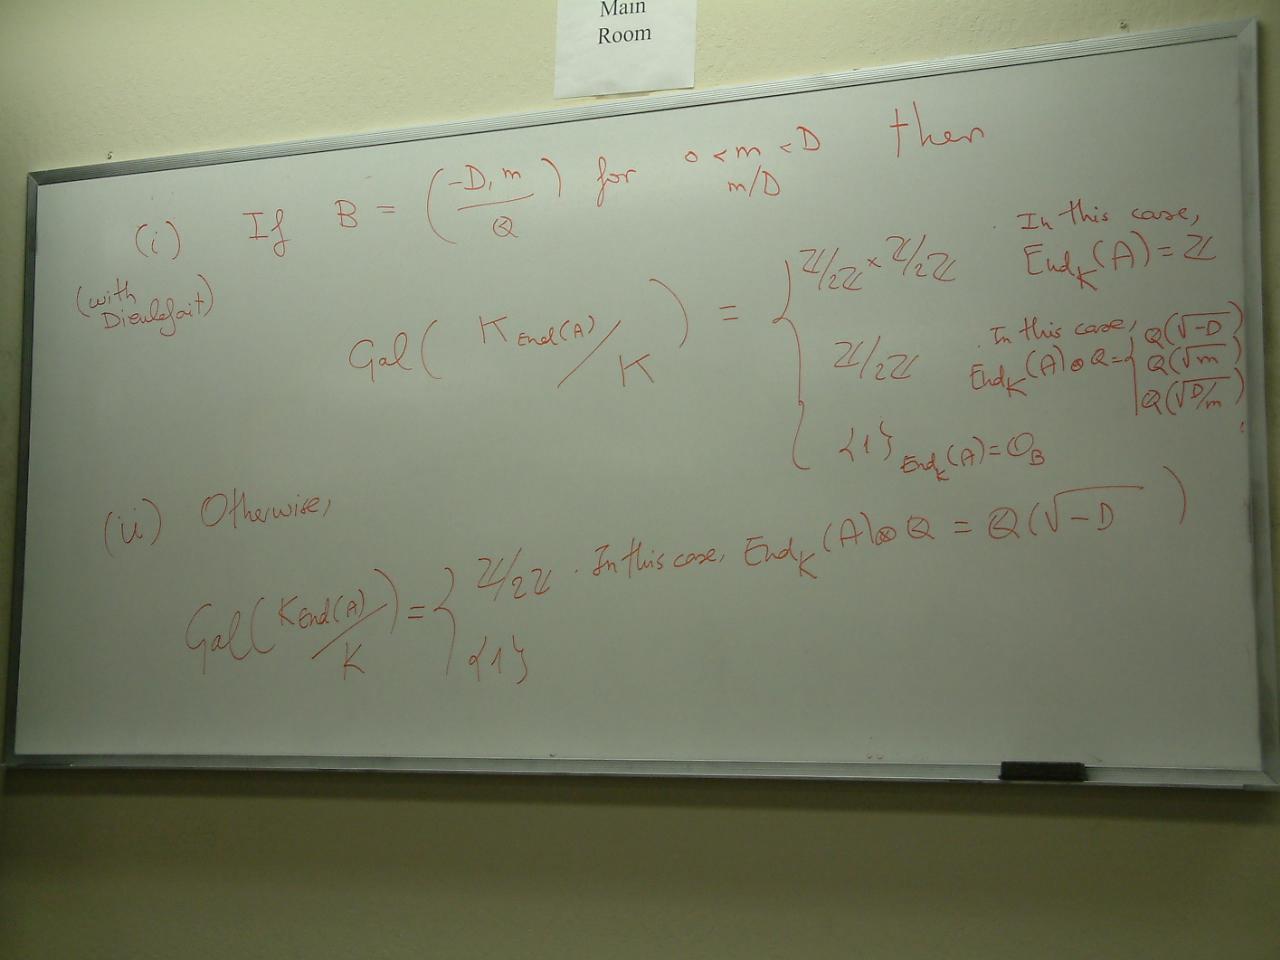 Main
Room
(i) If B = (-D, m / Q) for 0 < m < D then
m/D
(with Dieulefait)
Gal(K_End(A)/K) = { Z/2Z × Z/2Z . In this case, End_K(A) = Z
Z/2Z . In this case, End_K(A) ⊗ Q = { Q(√-D)
Q(√m)
Q(√D/m)
{1} End_K(A) = O_B
(ii) Otherwise,
Gal(K_End(A)/K) = { Z/2Z . In this case, End_K(A) ⊗ Q = Q(√-D)
{1}